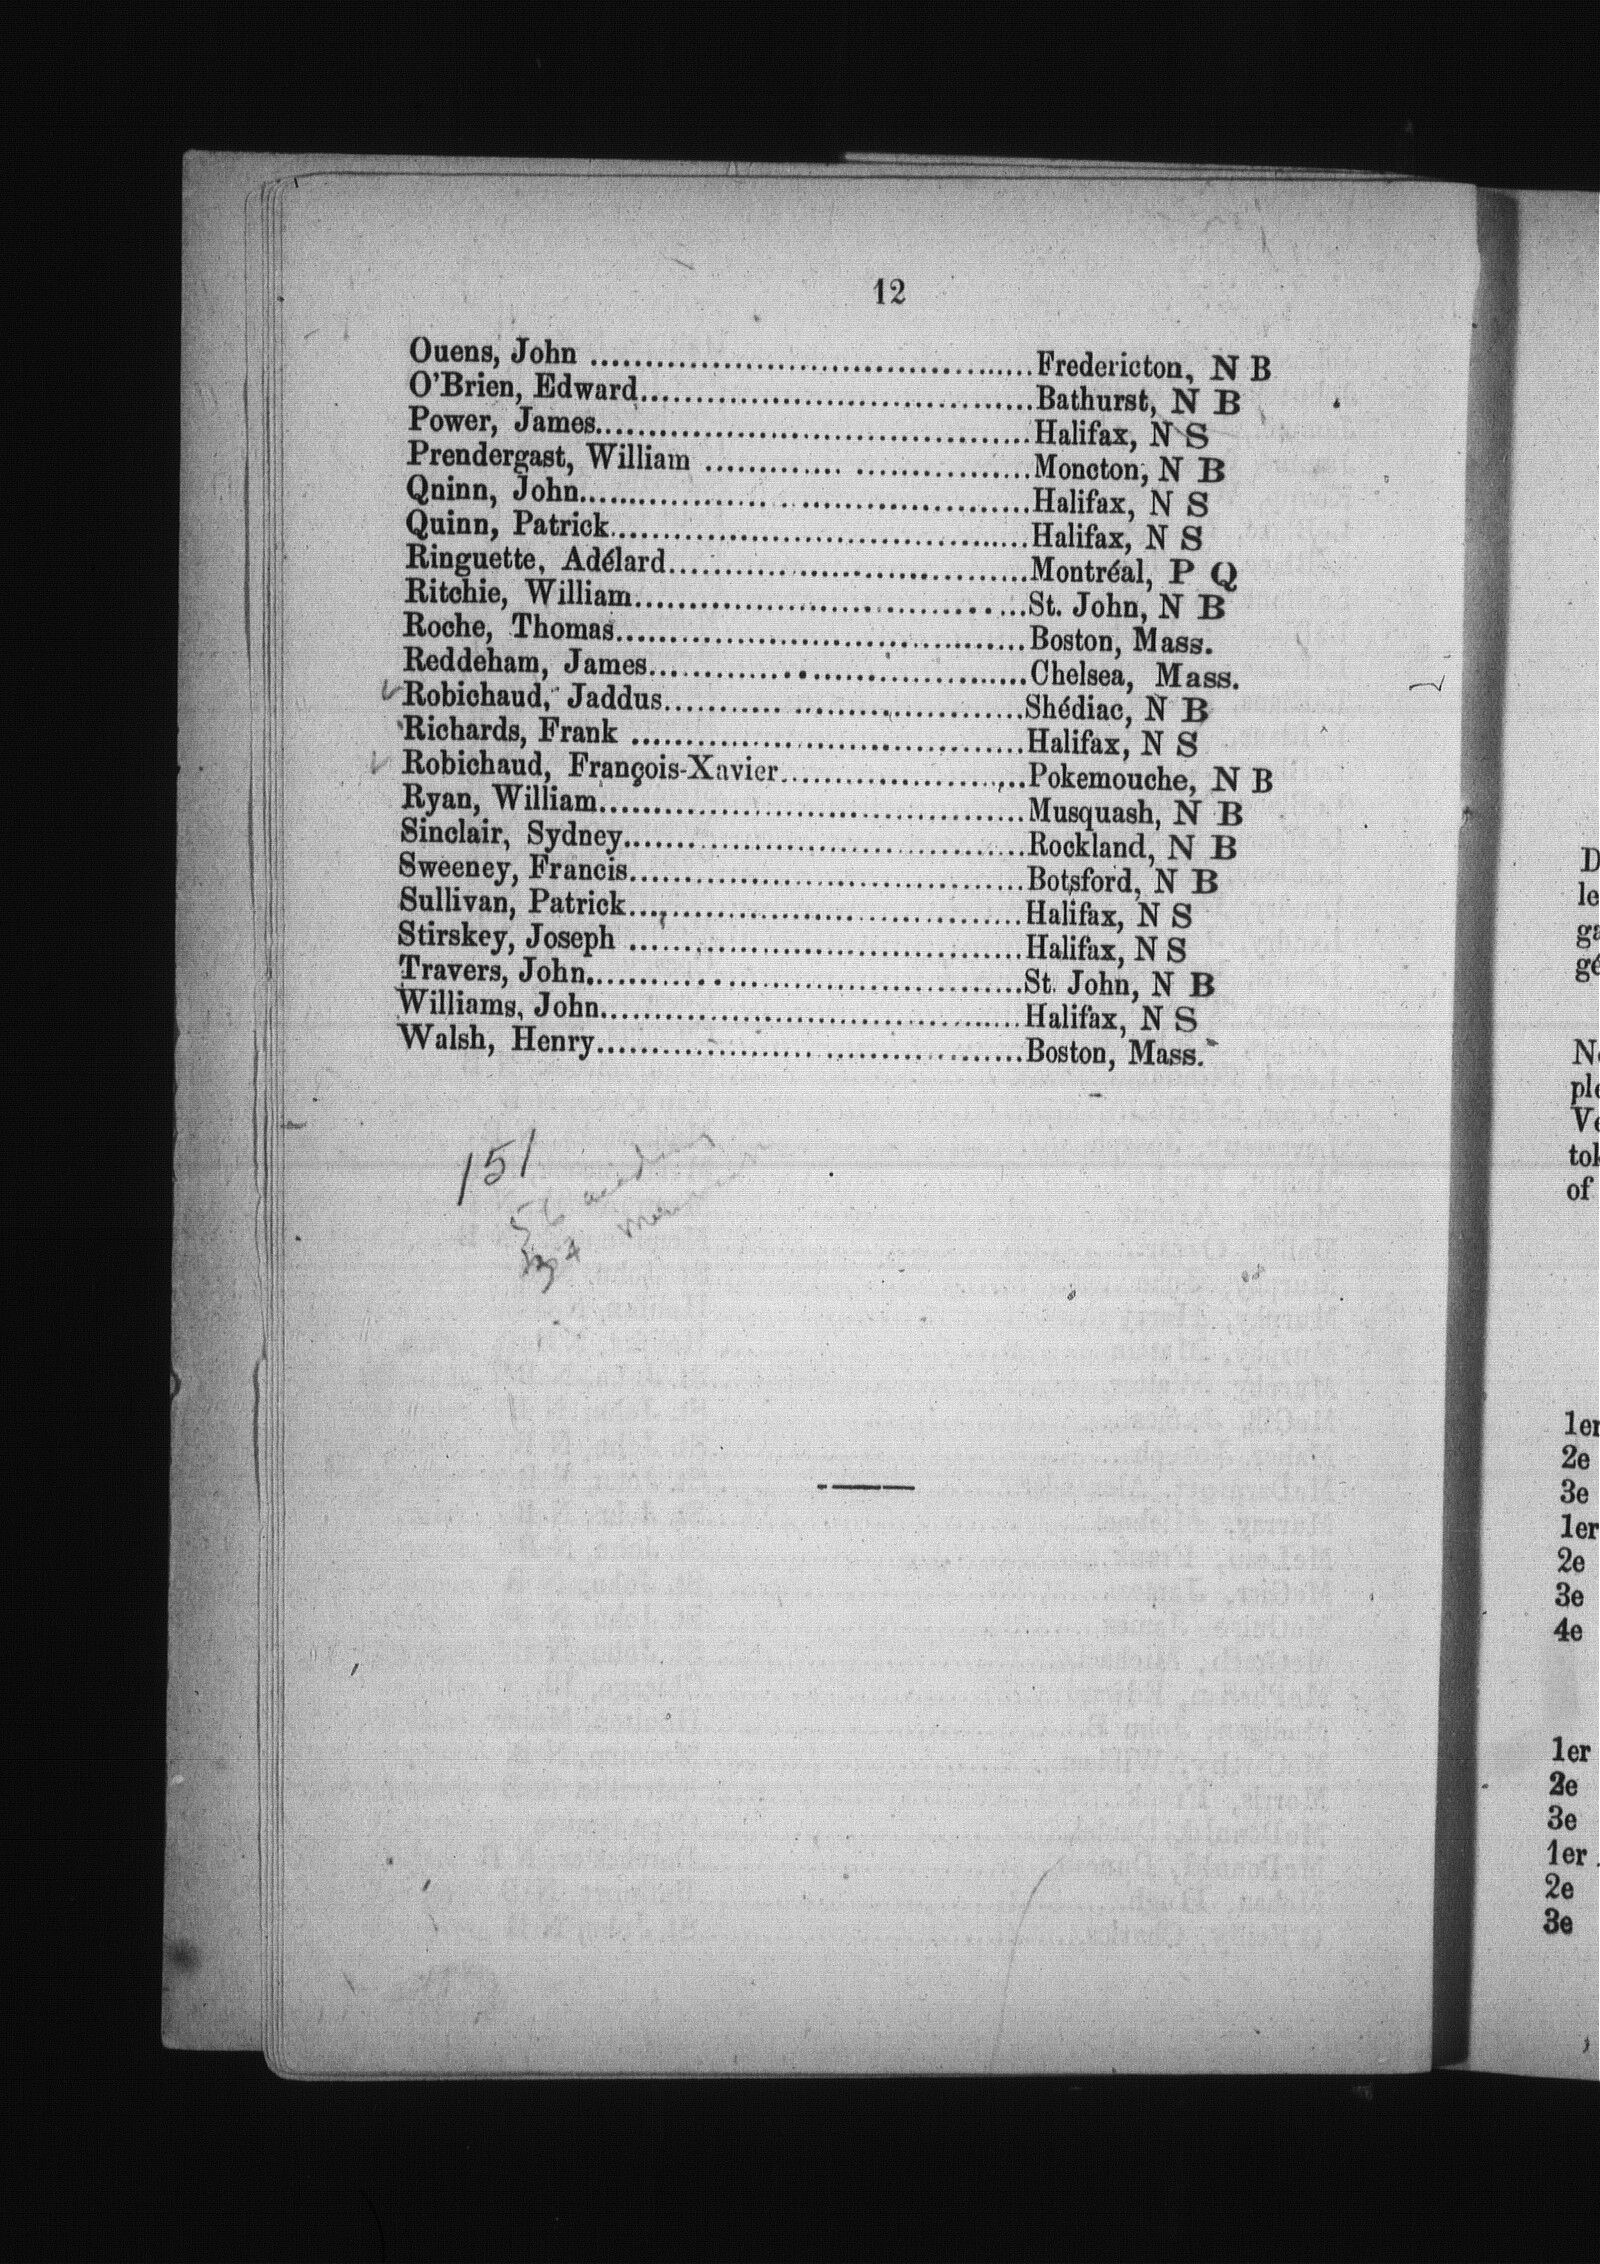 12
Ouens, John ........................................ Fredericton, N B
O'Brien, Edward.................................... Bathurst, N B
Power, James....................................... Halifax, N S
Prendergast, William ............ ................ Moncton, N B
Qninn, John........................................ Halifax, N S
Quinn, Patrick..................................... Halifax, N S
Ringuette, Adélard................................. Montréal, P Q
Ritchie, William................................... St. John, N B
Roche, Thomas...................................... Boston, Mass.
Reddeham, James.................................... Chelsea, Mass.
Robichaud, Jaddus.................................. Shédiac, N B
Richards, Frank ................................... Halifax, N S
Robichaud, François-Xavier......................... Pokemouche, N B
Ryan, William...................................... Musquash, N B
Sinclair, Sydney................................... Rockland, N B
Sweeney, Francis................................... Botsford, N B
Sullivan, Patrick.................................. Halifax, N S
Stirskey, Joseph .................................. Halifax, N S
Travers, John...................................... St. John, N B
Williams, John..................................... Halifax, N S
Walsh, Henry....................................... Boston, Mass.
151
56
D
le
ga
gé
No
ple
Ve
tok
of
1er
2e
3e
1er
2e
3e
4e
1er
2e
3e
1er
2e
3e